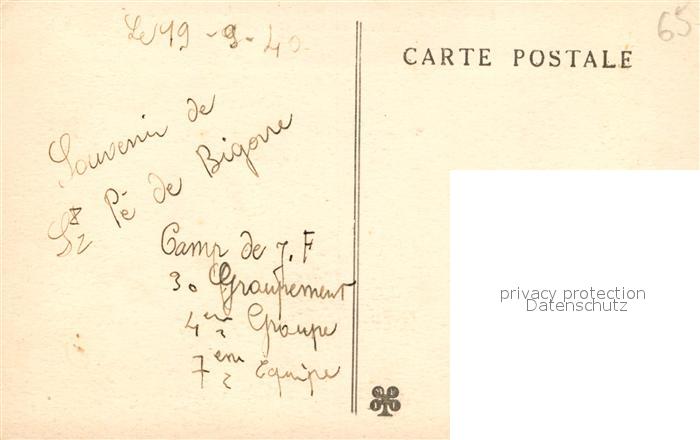 Le 19 - 9 - 40
65
CARTE POSTALE
Souvenir de
St Pé de Bigorre
Camp de J. F
30 Groupement
4eme Groupe
7eme Equipe
privacy protection
Datenschutz